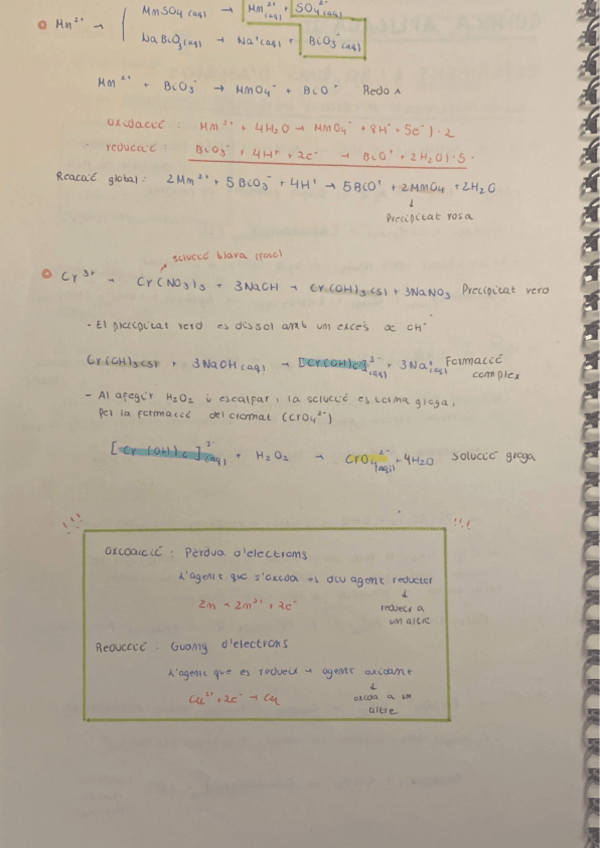 Mn²⁺ → { MnSO₄(aq) → Mn²⁺(aq) + SO₄²⁻(aq)
NaBiO₃(aq) → Na⁺(aq) + BiO₃⁻(aq)
Mn²⁺ + BiO₃⁻ → MnO₄⁻ + BiO⁺ Redox
oxidació : Mn²⁺ + 4H₂O → MnO₄⁻ + 8H⁺ + 5e⁻) · 2
reducció : BiO₃⁻ + 4H⁺ + 2e⁻ → BiO⁺ + 2H₂O) · 5
Reacció global : 2Mn²⁺ + 5BiO₃⁻ + 4H⁺ → 5BiO⁺ + 2MnO₄⁻ + 2H₂O
↓
Precipitat rosa
solució blava (fosc)
Cr³⁺ → Cr(NO₃)₃ + 3NaOH → Cr(OH)₃(s) + 3NaNO₃ Precipitat verd
- El precipitat verd es dissol amb un excés de OH⁻
Cr(OH)₃(s) + 3NaOH(aq) → [Cr(OH)₆]³⁻(aq) + 3Na⁺(aq) Formació
complex
- Al afegir H₂O₂ i escalfar, la solució es torna groga,
per la formació del cromat (CrO₄²⁻)
[Cr(OH)₆]³⁻(aq) + H₂O₂ → CrO₄²⁻(aq) + 4H₂O solució groga
!!! !!!
Oxidació : Pèrdua d'electrons
L'agent que s'oxida es diu agent reductor
↓
Zn → Zn²⁺ + 2e⁻ redueix a
un altre
Reducció : Guany d'electrons
L'agent que es redueix → agent oxidant
↓
Cu²⁺ + 2e⁻ → Cu oxida a un
altre